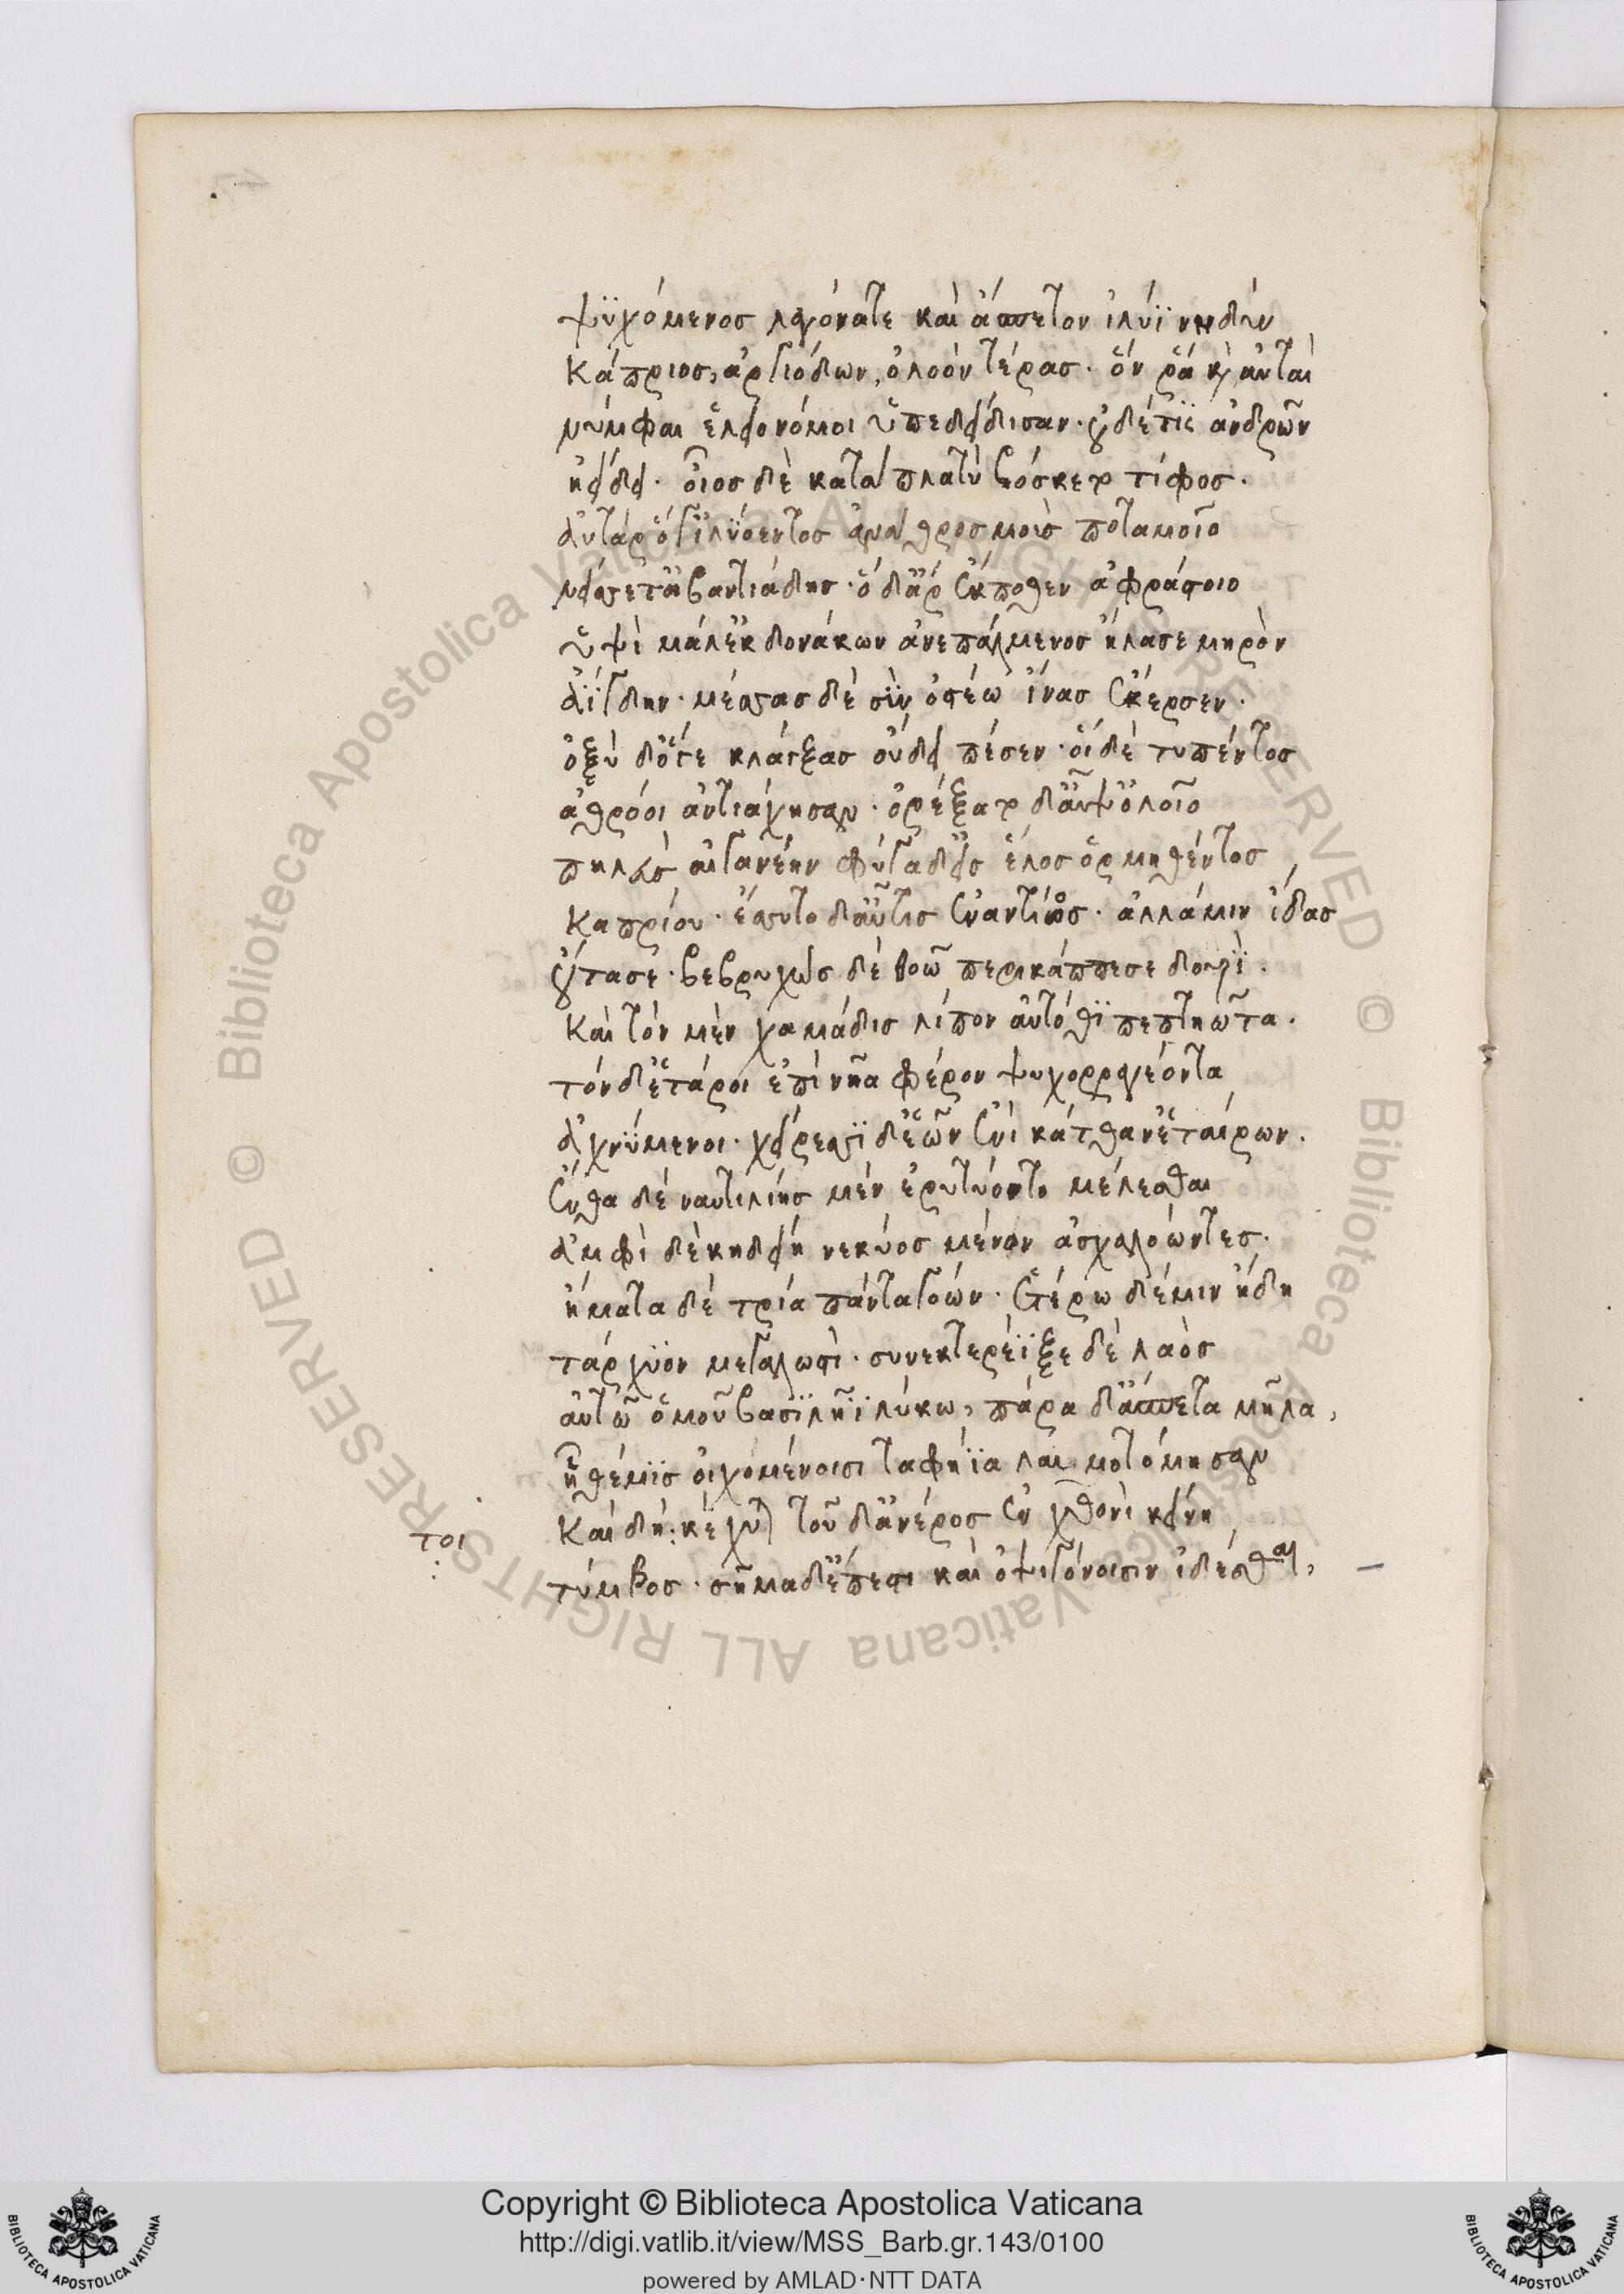 ψυχόμενος λαγόνάτε καὶ ἄσπετον ἰλύϊ νηδὺν
Κάπριος, ἀργιόδων, ὀλοὸν τέρας. ὅν ῥά καὶ ἀυταὶ
νύμφαι ἑλειονόμοι ὑπεδείδισαν. οὐδέτις ἀνδρῶν
ἠείδει. οἶος δὲ κατὰ πλατὺ βόσκετο τίφος.
ἀυτὰρ ὅγ ἰλυόεντος ἀνὰ θρσσμοὺς ποταμοῖο
νείσετ ἀβαντιάδης. ὁ δ ἄρ ἔκποθεν ἀφράστοιο
ὕψὶ μάλ ἐκ δονάκων ἀνεπάλμενος ἤλασε μηρὸν
ἀΐγδην. μέσσας δὲ σὺν ὀστέω ἶνας ἔκερσεν.
ὀξὺ δ ὅγε κλάγξας οὔδει πέσεν. οἱ δὲ τυπέντος
ἀθρόοι ἀντιάχησαν. ὀρέξατο δ ἆιψ ὀλοοῖο
πηλεὺς αἰγανέην φύγαδ εἰς ἕλος ὁρμηθέντος
Καπρίου. ἔσσυτο δ αὖτις ἐναντίος. ἀλλά μιν ἴδας
οὔτασε. βεβρυχὼς δὲ θοῶ περικάππεσε δουρὶ.
Καὶ τὸν μὲν χαμάδις λίπον αὐτόθι πεπτηῶτα.
τόν δ ἕταροι ἐπὶ νῆα φέρον ψυχορραγέοντα
ἀχνύμενοι. χείρεσσι δ ἑῶν ἐνὶ κάτθαν ἑταίρων.
ἔνθα δὲ ναυτιλίης μὲν ἐρυτύοντο μέλεσθαι
ἀμφὶ δὲ κηδείη νεκύος μένον ἀσχαλόωντες.
ἤματα δὲ τρία πάντα γόων. ἑτέρω δέ μιν ἤδη
τάρχυον μεγαλωστὶ. συνεκτερέϊξε δὲ λαὸς
αὐτῶ ὁμοῦ βασιλῆϊ λύκω, πάρα δ ἄσπετα μῆλα,
ἣ θέμις οἰχομένοισι ταφήϊα λαιμοτόμησαν
Καὶ δή: κέχυται τοῦ δ ἀνέρος ἐν χθονὶ κείνη
τοι
τύμβος. σῆμα δ ἔπεστι καὶ ὀψιγόνοισιν ἰδέσθαι, –
Copyright © Biblioteca Apostolica Vaticana
http://digi.vatlib.it/view/MSS_Barb.gr.143/0100
powered by AMLAD·NTT DATA
BIBLIOTECA APOSTOLICA VATICANA
BIBLIOTECA APOSTOLICA VATICANA
Biblioteca Apostolica Vaticana ALL RIGHTS RESERVED ©
Biblioteca Apostolica Vaticana ALL RIGHTS RESERVED ©